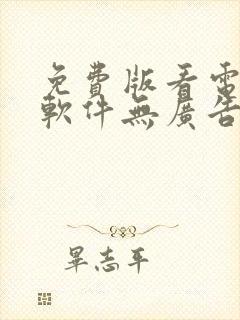 免費版看電
軟件無廣告
畢志平